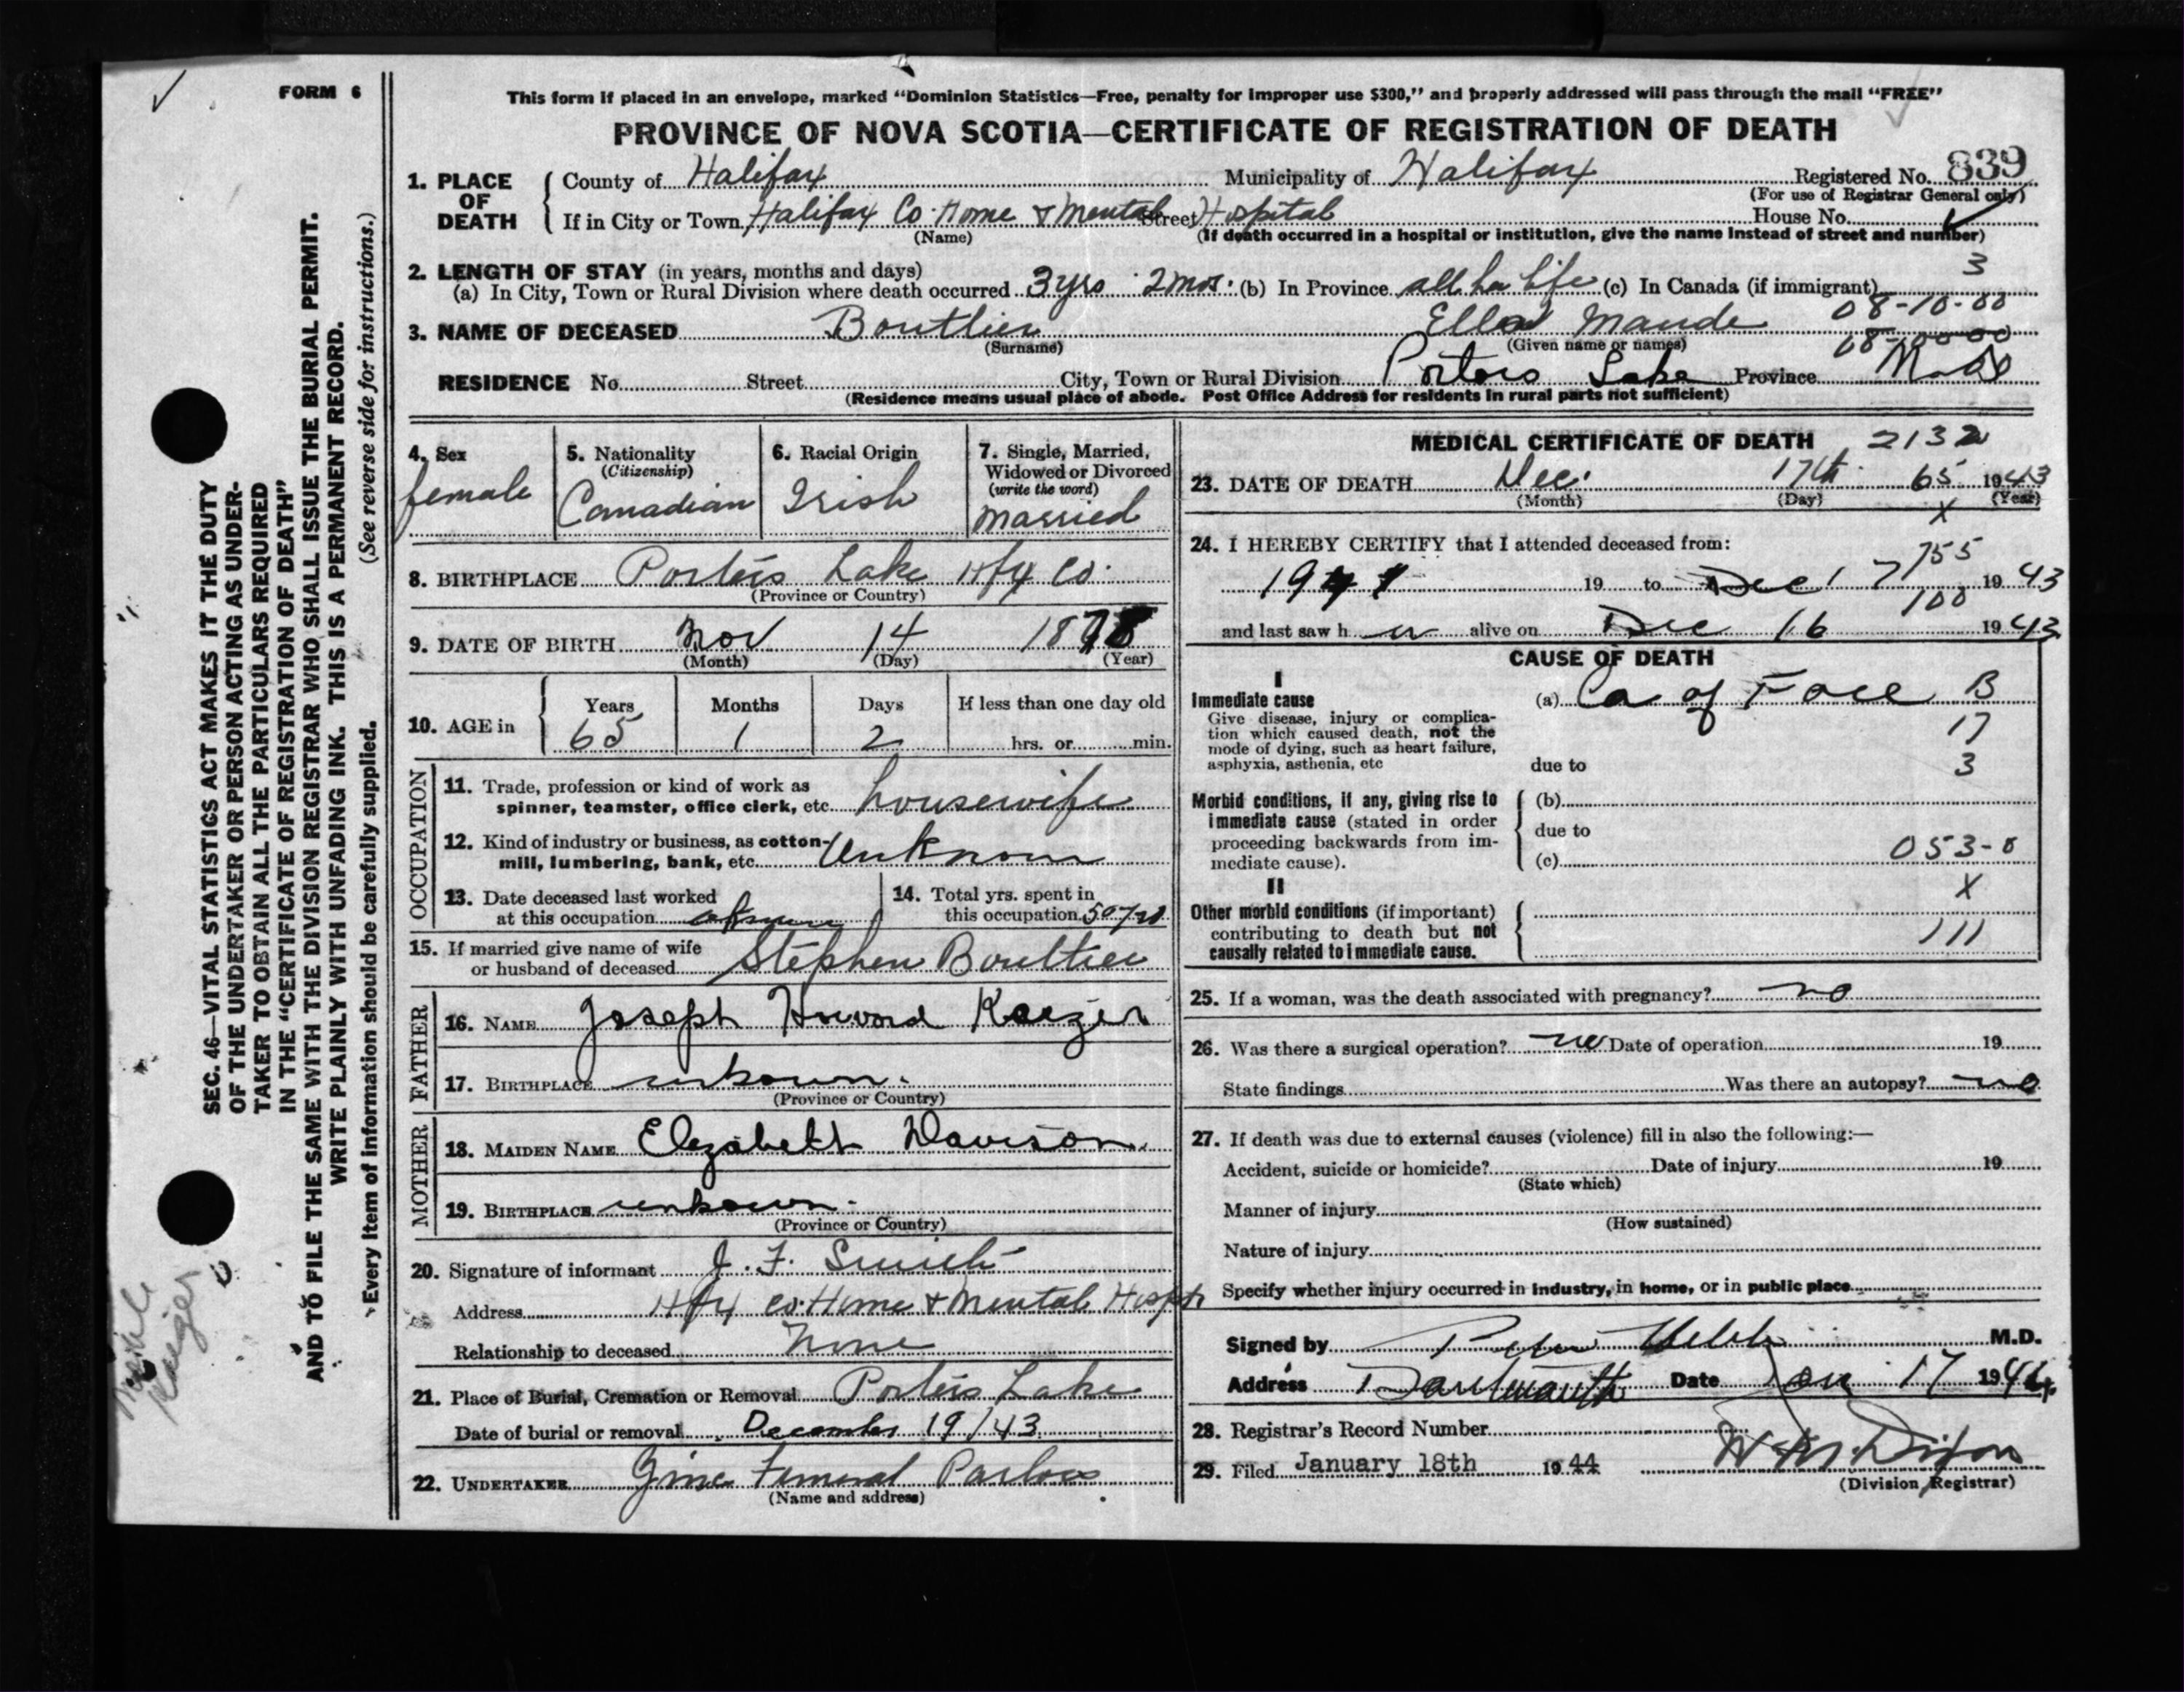 FORM 6
This form if placed in an envelope, marked “Dominion Statistics—Free, penalty for improper use $300,” and properly addressed will pass through the mail “FREE”
PROVINCE OF NOVA SCOTIA—CERTIFICATE OF REGISTRATION OF DEATH
1. PLACE OF DEATH
County of Halifax Municipality of Halifax Registered No. 839
(For use of Registrar General only)
If in City or Town Halifax Co. Home & Mental Street Hospital House No.
(Name) (If death occurred in a hospital or institution, give the name instead of street and number)
3
2. LENGTH OF STAY (in years, months and days)
(a) In City, Town or Rural Division where death occurred 3 yrs 2 mos. (b) In Province all her life (c) In Canada (if immigrant)
08-10-00
3. NAME OF DECEASED Boutlier Maude
(Surname) (Given name or names)
RESIDENCE No. Street City, Town or Rural Division Porters Lake Province
(Residence means usual place of abode. Post Office Address for residents in rural parts not sufficient)
4. Sex
female
5. Nationality
(Citizenship)
Canadian
6. Racial Origin
Irish
7. Single, Married,
Widowed or Divorced
(write the word)
Married
8. BIRTHPLACE Porters Lake Hfx Co.
(Province or Country)
9. DATE OF BIRTH Nov 14 1878
(Month) (Day) (Year)
10. AGE in
Years Months Days If less than one day old
65 1 2 hrs. or min.
OCCUPATION
11. Trade, profession or kind of work as
spinner, teamster, office clerk, etc. housewife
12. Kind of industry or business, as cotton-
mill, lumbering, bank, etc. Unknown
13. Date deceased last worked
at this occupation
14. Total yrs. spent in
this occupation
15. If married give name of wife
or husband of deceased Stephen Boultier
FATHER
16. NAME Joseph Howard Kaezer
17. BIRTHPLACE unkown.
(Province or Country)
MOTHER
18. MAIDEN NAME Elezabeth Davison.
19. BIRTHPLACE unkown.
(Province or Country)
20. Signature of informant J. F. Smith
Address Hfx Co. Home & Mental Hospt
Relationship to deceased None
21. Place of Burial, Cremation or Removal Porters Lake
Date of burial or removal December 19/43
22. UNDERTAKER Funeral Parlors
(Name and address)
MEDICAL CERTIFICATE OF DEATH 2132
23. DATE OF DEATH Dec. 17th 65 1943
(Month) (Day) (Year)
X
24. I HEREBY CERTIFY that I attended deceased from:
755
1941 19 to Dec 17 1943
100
and last saw her alive on Dec 16 1943
CAUSE OF DEATH
I
Immediate cause
Give disease, injury or complica-
tion which caused death, not the
mode of dying, such as heart failure,
asphyxia, asthenia, etc
(a) Ca of Face B
17
due to 3
Morbid conditions, if any, giving rise to
immediate cause (stated in order
proceeding backwards from im-
mediate cause).
(b)
due to
(c) 053-0
II
X
Other morbid conditions (if important)
contributing to death but not
causally related to immediate cause.
111
25. If a woman, was the death associated with pregnancy? no
26. Was there a surgical operation? no Date of operation 19
State findings Was there an autopsy? no
27. If death was due to external causes (violence) fill in also the following:—
Accident, suicide or homicide? Date of injury 19
(State which)
Manner of injury
(How sustained)
Nature of injury
Specify whether injury occurred in industry, in home, or in public place
Signed by M.D.
Address Dartmouth Date Jan 17 1944
28. Registrar's Record Number
29. Filed January 18th 1944
(Division Registrar)
SEC. 46—VITAL STATISTICS ACT MAKES IT THE DUTY
OF THE UNDERTAKER OR PERSON ACTING AS UNDER-
TAKER TO OBTAIN ALL THE PARTICULARS REQUIRED
IN THE “CERTIFICATE OF REGISTRATION OF DEATH”
AND TO FILE THE SAME WITH THE DIVISION REGISTRAR WHO SHALL ISSUE THE BURIAL PERMIT.
WRITE PLAINLY WITH UNFADING INK. THIS IS A PERMANENT RECORD.
Every item of information should be carefully supplied. (See reverse side for instructions.)